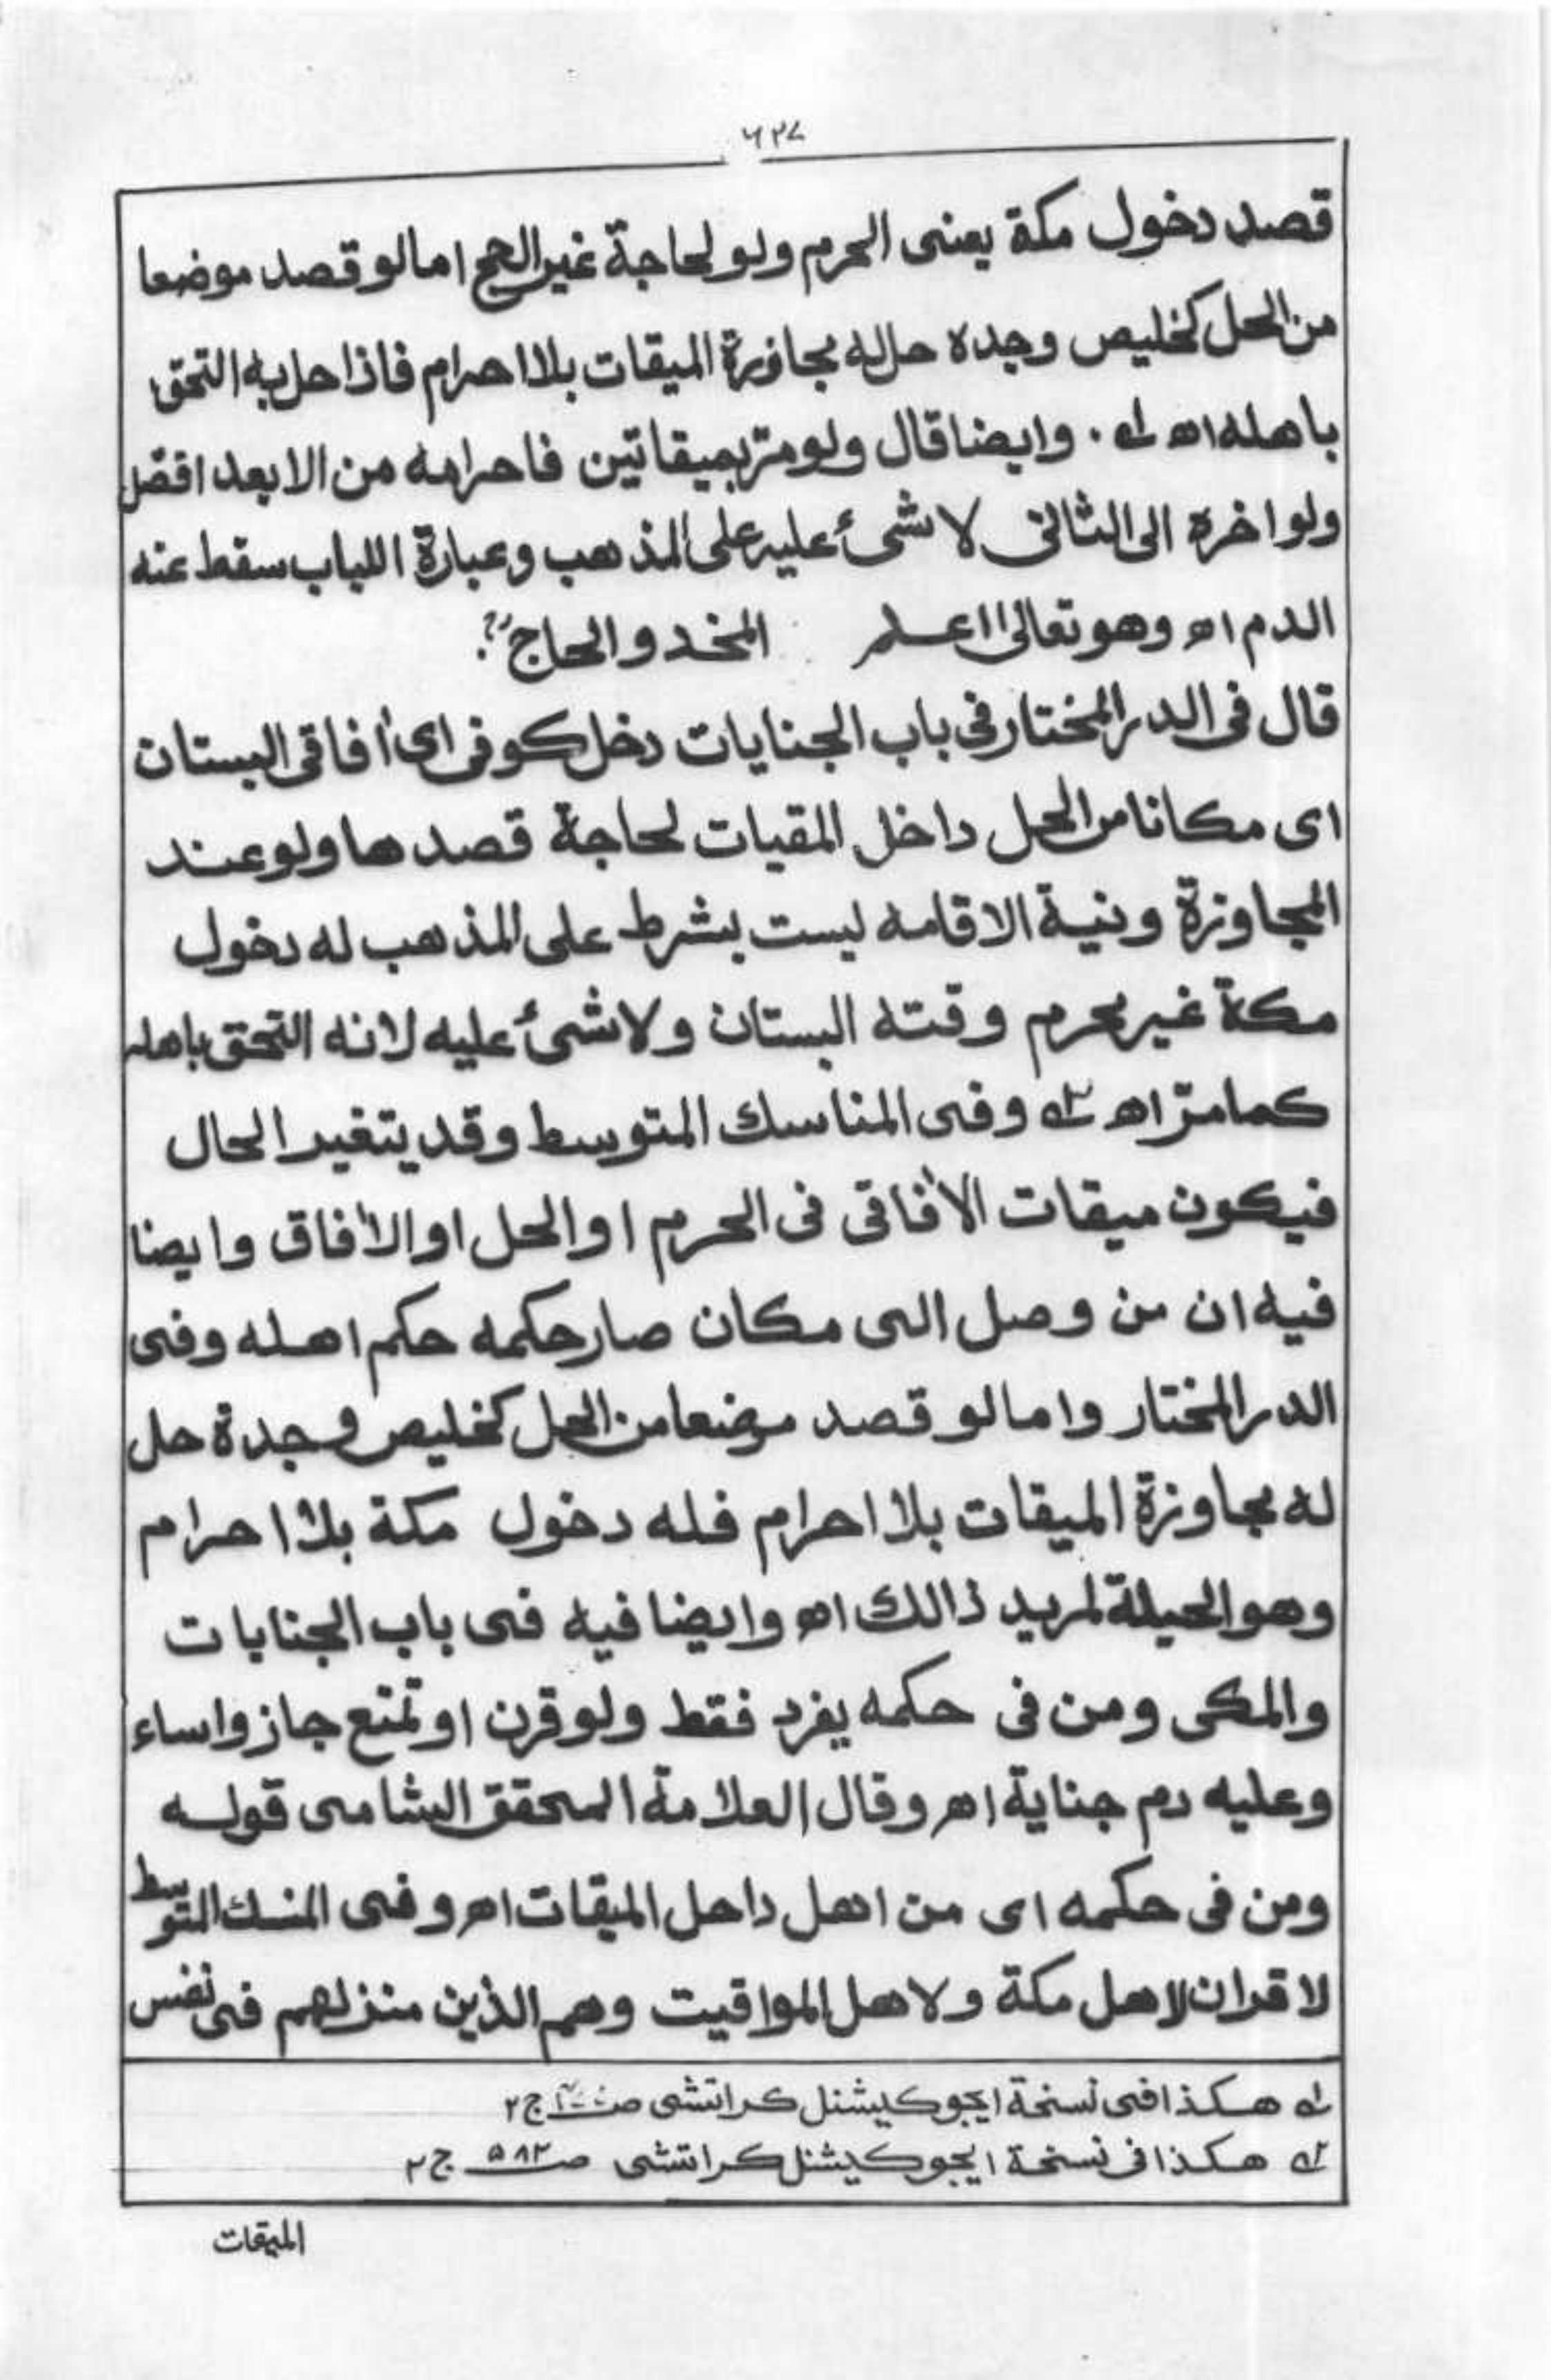 ٦٢٧
قصد دخول مكة يعنى الحرم ولو لحاجة غير الحج امالو قصد موضعا
من الحل كخليص وجده حل له مجاوزة الميقات بلا احرام فاذا حل به التحق
باهله اھ لہ . وايضا قال ولو مرّ بميقاتين فاحرامه من الابعد افضل
ولو اخره الى الثانى لا شئ عليه على المذهب وعبارة اللباب سقط عنه
الدم اھ وهو تعالىٰ اعلم المخدو الحاج
قال فى الدر المختار فى باب الجنايات دخل كوفى اى اٰفاقى البستان
اى مكانا من الحل داخل المقيات لحاجة قصدها ولو عند
المجاوزة ونية الاقامه ليست بشرط على المذهب له دخول
مكة غير محرم وقته البستان ولا شئ عليه لانه التحق باهله
كما مرّ اھ ٢ہ وفى المناسك المتوسط وقد يتغير الحال
فيكون ميقات الاٰفاقى فى الحرم او الحل او الاٰفاق وايضا
فيه ان من وصل الى مكان صار حكمه حكم اهله وفى
الدر المختار واما لو قصد موضعا من الحل كخليص وجدة حل
له مجاوزة الميقات بلا احرام فله دخول مكة بلا احرام
وهو الحيلة لمريد ذالك اھ وايضا فيه فى باب الجنايات
والمكى ومن فى حكمه يفرد فقط ولو قرن او تمتع جاز واساء
وعليه دم جناية اھ وقال العلامة المحقق الشامى قوله
ومن فى حكمه اى من اهل داحل الميقات اھ وفى المنسك المتوسط
لا قران لاهل مكة ولا هل المواقيت وهم الذين منزلهم فى نفس
لہ هكذا فى نسخة ايجوكيشنل كراتشى ص ج ٢
٢ہ هكذا فى نسخة ايجوكيشنل كراتشى ص ٥٨٢ ج ٢
الميقات